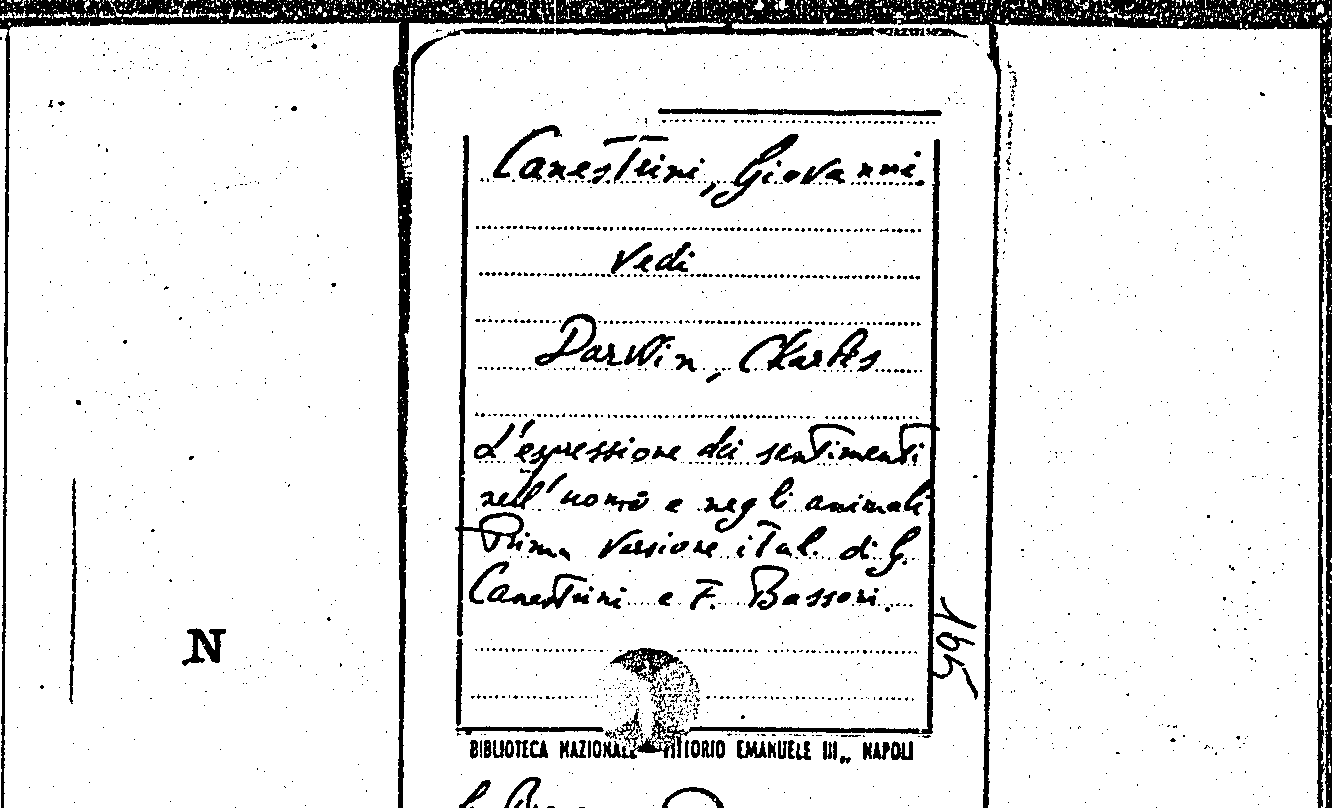 Canestrini, Giovanni.
Vedi
Darwin, Charles
L'espressione dei sentimenti
nell'uomo e negli animali
Prima versione ital. di G.
Canestrini e F. Bassani.
165
N
BIBLIOTECA NAZIONALE VITTORIO EMANUELE III„ NAPOLI